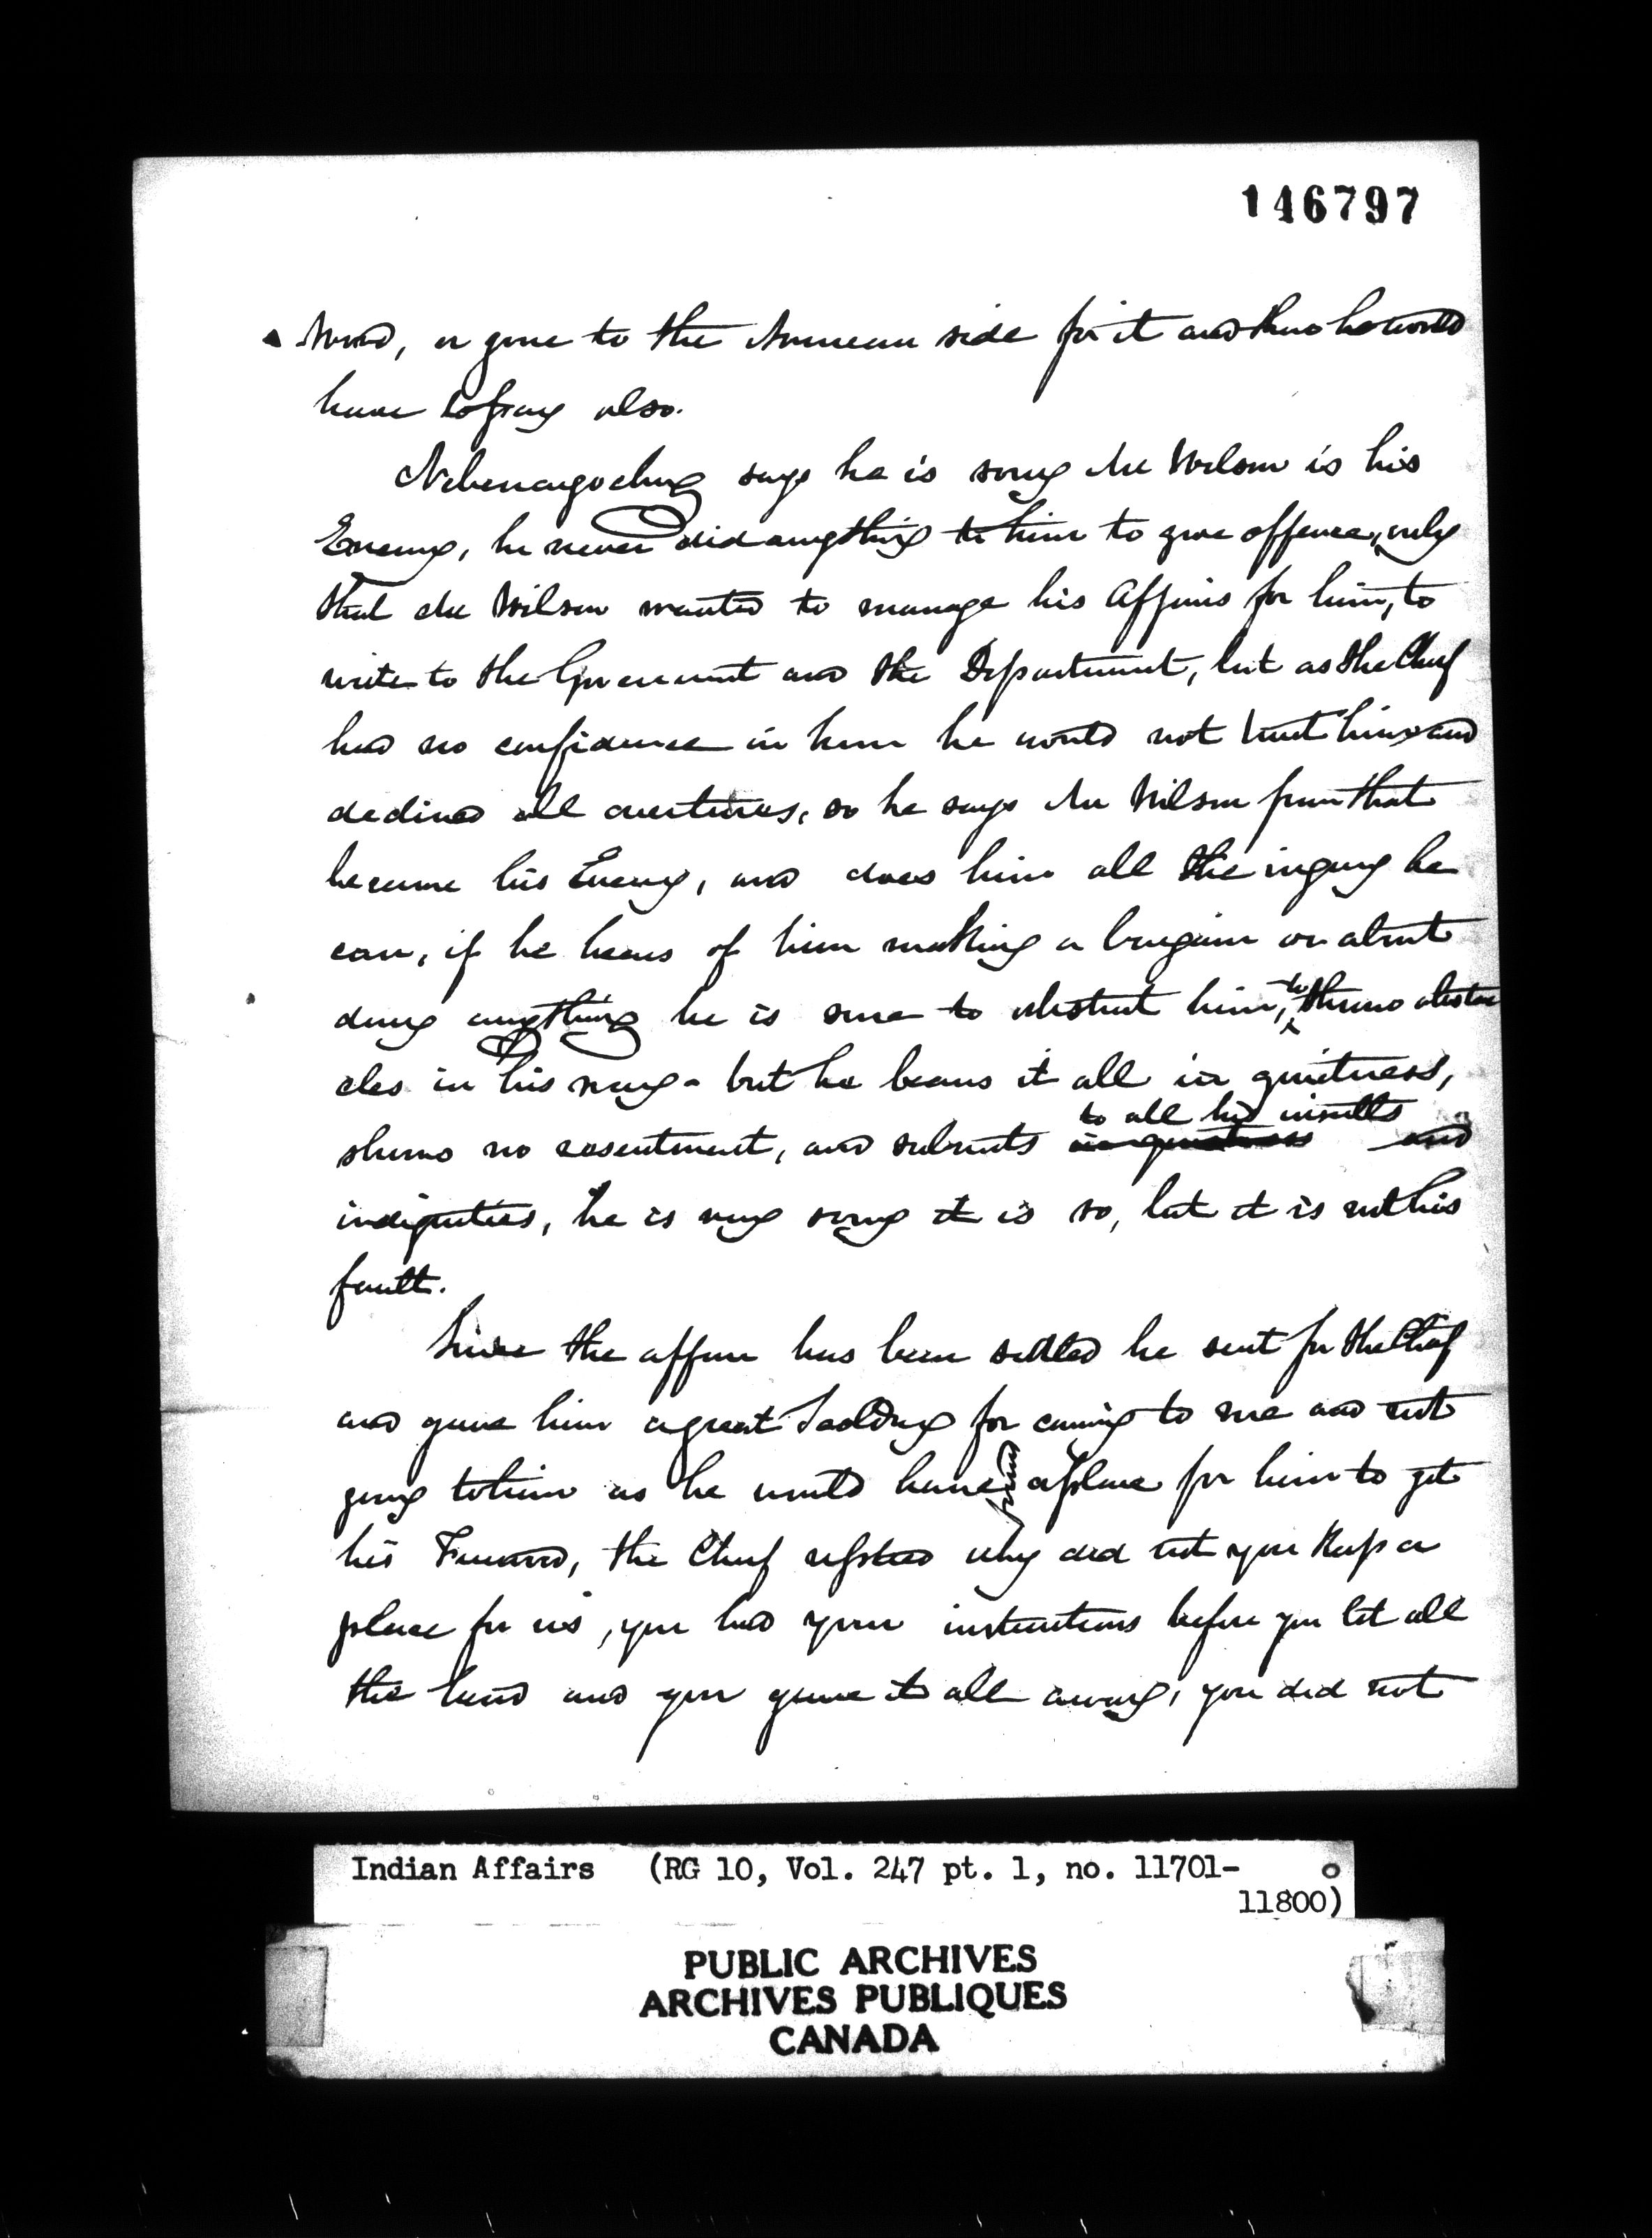 146797
Wood, or gone to the American side for it and there he would
have to pay also.
Nebenaigoching says he is sorry Mr Wilson is his
Enemy, he never did anything to him to give offence, only
that Mr Wilson wanted to manage his Affairs for him, to
write to the Government and the Department, but as the Chief
had no confidence in him he would not trust him and
declined all overtures, so he says Mr Wilson from that
became his Enemy, and does him all the injury he
can, if he hears of him making a bargain or about
doing anything he is sure to obstruct him, to throw obsta
cles in his way - but he bears it all in quietness,
shows no resentment, and submits in quietness to all his insults and
indignities, he is very sorry it is so, but it is not his
fault.
Since the affair has been settled he sent for the Chief
and gave him a great Scolding for coming to me and not
going to him as he would have found a place for him to get
his Firewood, the Chief replied why did not you Keep a
place for us, you had your instructions before you let all
the land and you gave it all away, you did not
Indian Affairs (RG 10, Vol. 247 pt. 1, no. 11701-
11800)
PUBLIC ARCHIVES
ARCHIVES PUBLIQUES
CANADA